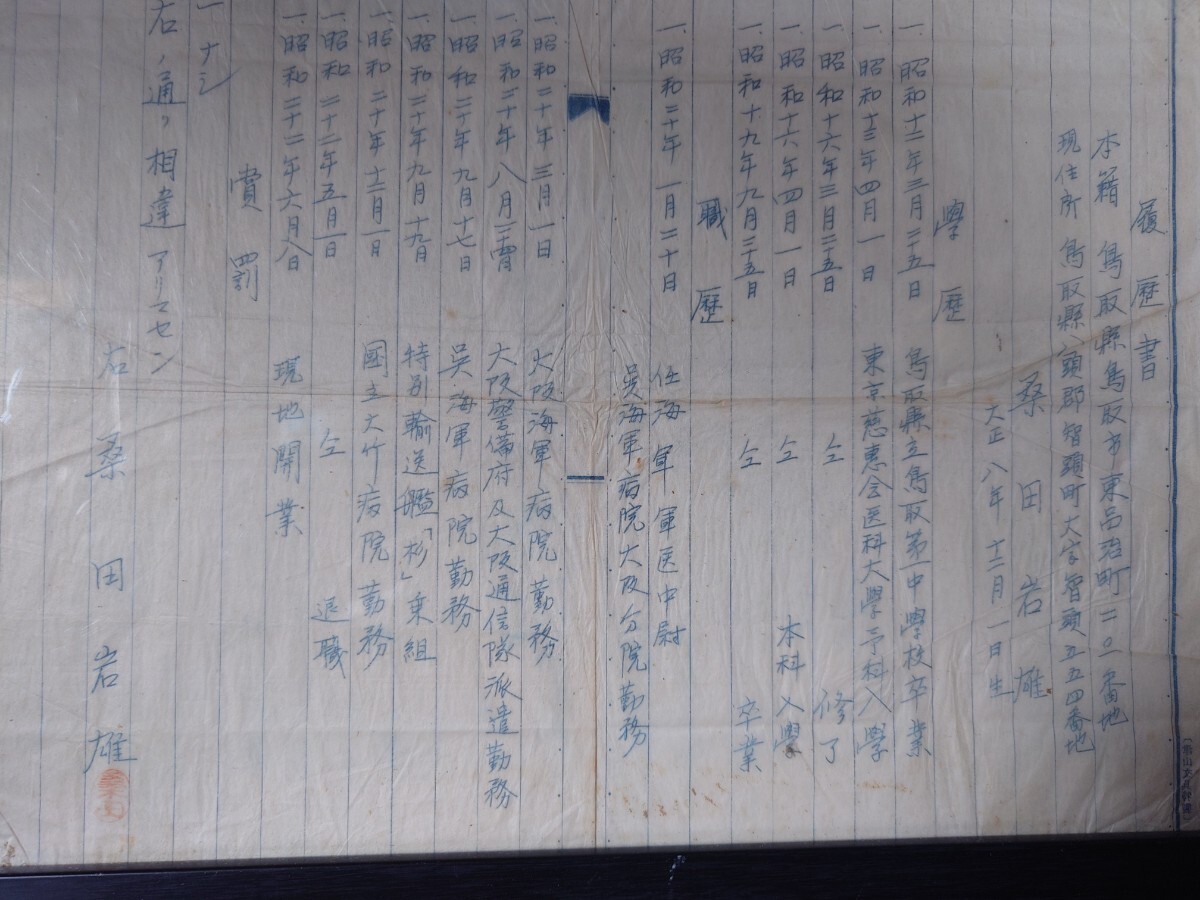 履歴書
本籍 鳥取縣鳥取市東品治町二〇二番地
現住所 鳥取縣八頭郡智頭町大字智頭五五四番地
桑田岩雄
大正八年十二月一日生
學歴
一、昭和十二年三月二十五日 鳥取縣立鳥取第一中學校卒業
一、昭和十三年四月一日 東京慈恵会医科大學予科入學
一、昭和十六年三月二十五日 仝 修了
一、昭和十六年四月一日 仝 本科入學
一、昭和十九年九月二十五日 仝 卒業
職歴
一、昭和二十年一月二十日 任海軍軍医中尉
呉海軍病院大阪分院勤務
一、昭和二十年三月一日 大阪海軍病院勤務
一、昭和二十年八月二十四日 大阪警備府及大阪通信隊派遣勤務
一、昭和二十年九月十七日 呉海軍病院勤務
一、昭和二十年九月十九日 特別輸送艦「杉」乗組
一、昭和二十年十二月一日 國立大竹病院勤務
一、昭和二十二年五月一日 仝 退職
一、昭和二十二年六月八日 現地開業
賞罰
一 ナシ
右ノ通リ相違アリマセン
右 桑田岩雄